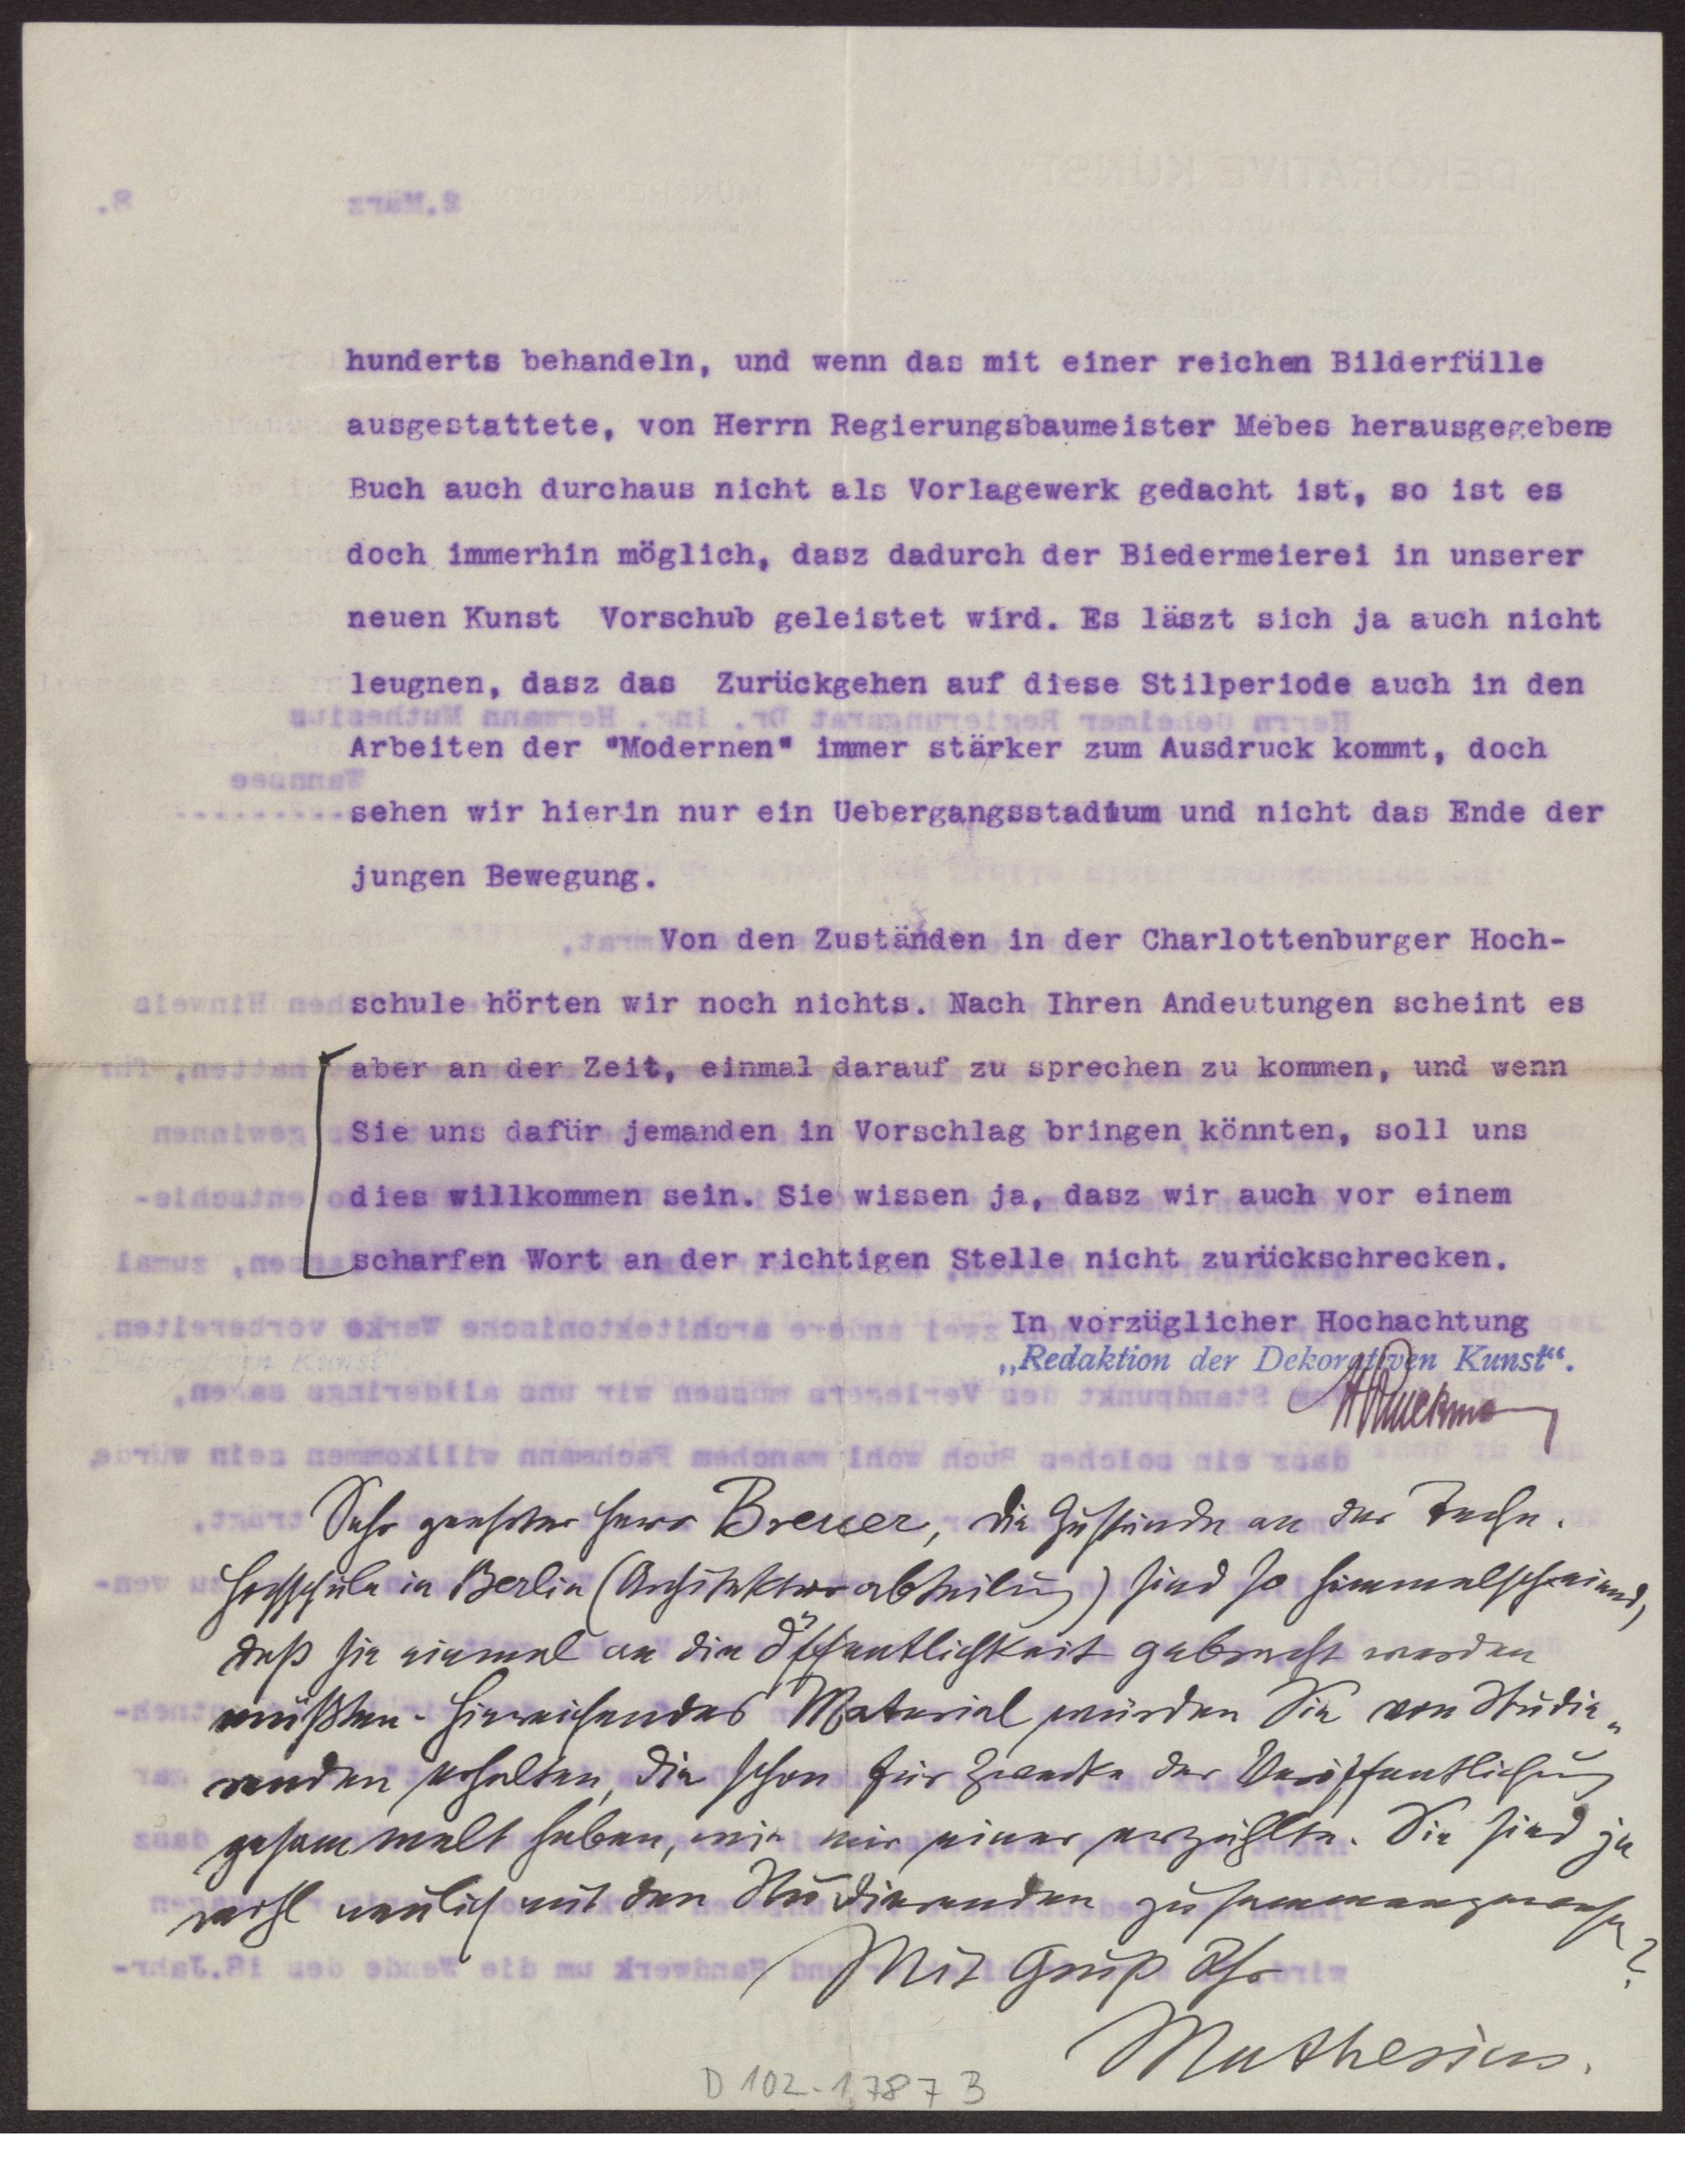 hunderts behandeln, und wenn das mit einer reichen Bilderfülle
ausgestattete, von Herrn Regierungsbaumeister Mebes herausgegebene
Buch auch durchaus nicht als Vorlagewerk gedacht ist, so ist es
doch immerhin möglich, dasz dadurch der Biedermeierei in unserer
neuen Kunst Vorschub geleistet wird. Es läszt sich ja auch nicht
leugnen, dasz das Zurückgehen auf diese Stilperiode auch in den
Arbeiten der "Modernen" immer stärker zum Ausdruck kommt, doch
sehen wir hierin nur ein Uebergangsstadium und nicht das Ende der
jungen Bewegung.
Von den Zuständen in der Charlottenburger Hoch-
schule hörten wir noch nichts. Nach Ihren Andeutungen scheint es
aber an der Zeit, einmal darauf zu sprechen zu kommen, und wenn
Sie uns dafür jemanden in Vorschlag bringen könnten, soll uns
dies willkommen sein. Sie wissen ja, dasz wir auch vor einem
scharfen Wort an der richtigen Stelle nicht zurückschrecken.
In vorzüglicher Hochachtung
„Redaktion der Dekorativen Kunst“.
Sehr geehrter Herr Breuer, die Zustände an der Techn.
Hochschule in Berlin (Architekturabteilung) sind so himmelschreiend,
daß sie einmal an die Öffentlichkeit gebracht werden
müßten. Hinreichendes Material würden Sie von Studie-
renden erhalten, die schon für Zwecke der Veröffentlichung
gesammelt haben, wie mir einer erzählte. Sie sind ja
wohl neulich mit den Studierenden zusammengewesen?
Mit Gruß Ihr
Muthesius.
D 102-1787 B